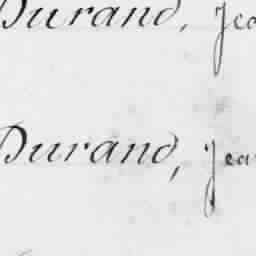 Durand, Jea
Durand, Jea